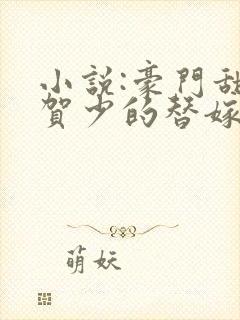 小說:豪門甜
賀少的替嫁
萌妖